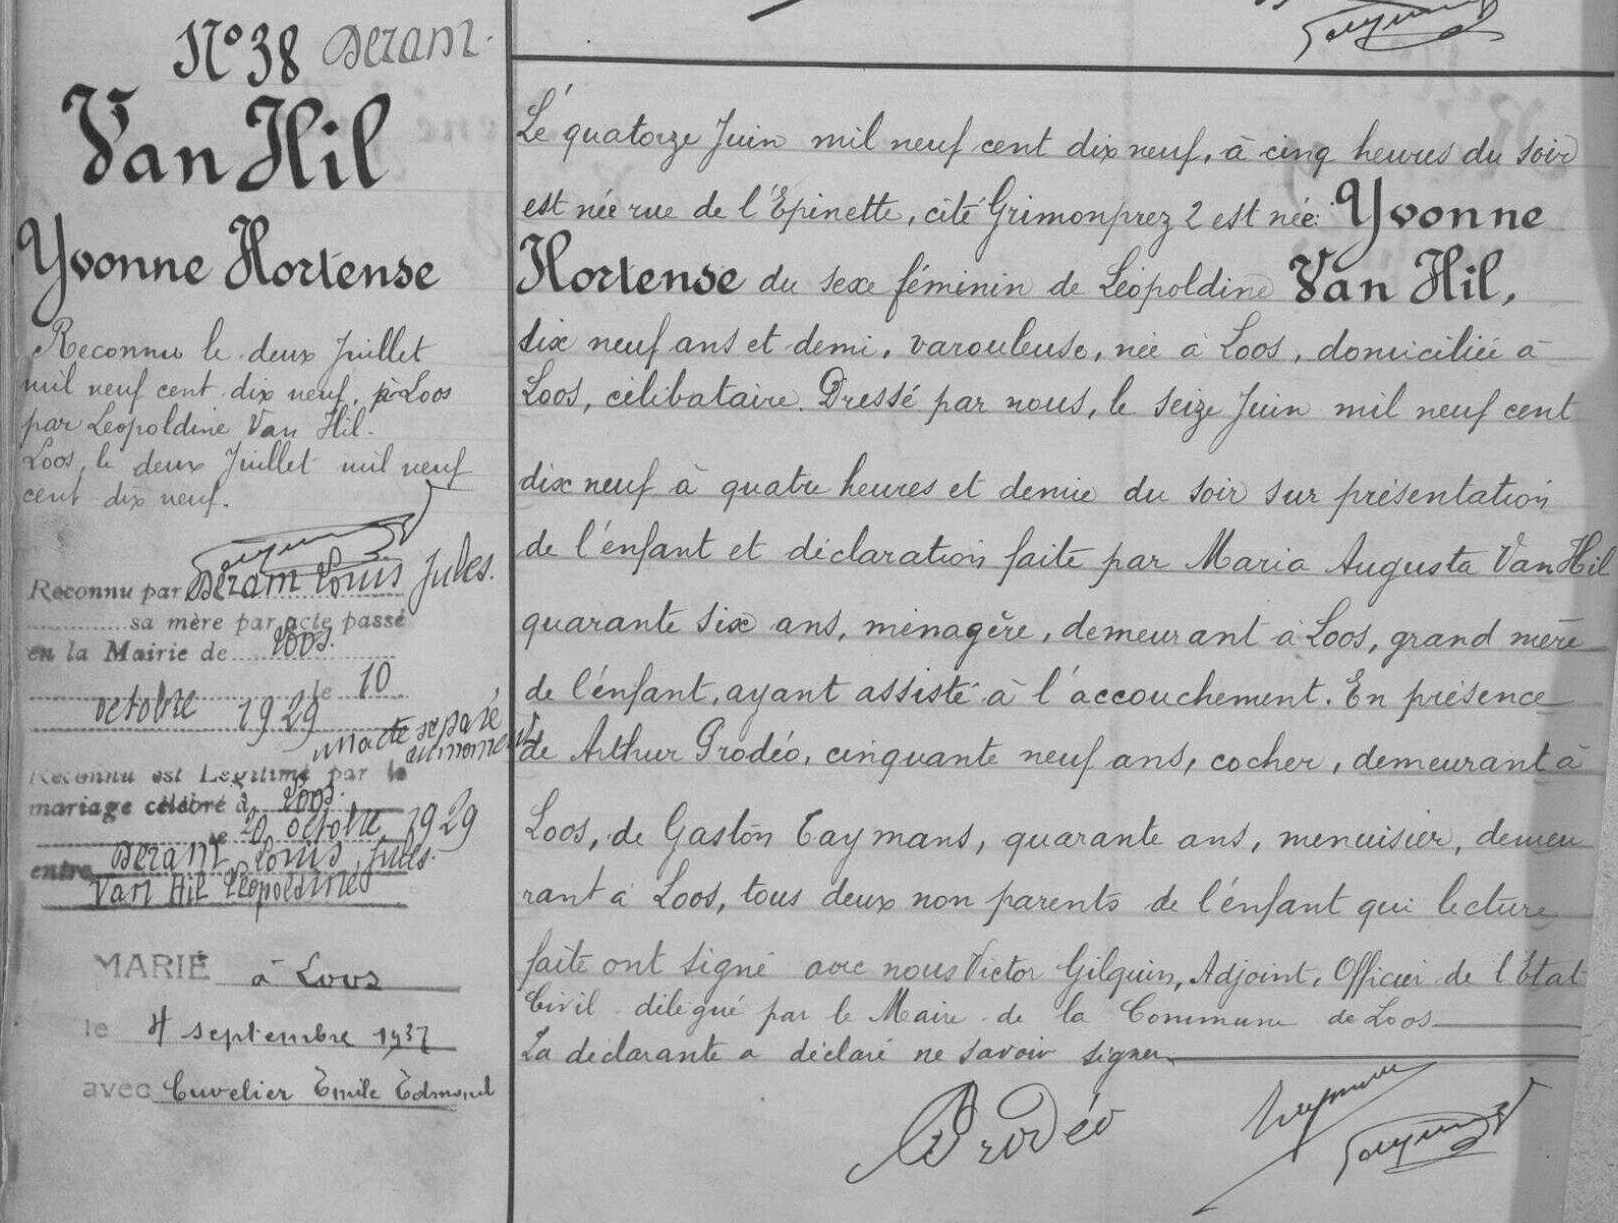 N° 38 Deram
Van Hil
Yvonne Hortense
Reconnu le deux Juillet
mil neuf cent dix neuf, à Loos
par Léopoldine Van Hil.
Loos, le deux Juillet mil neuf
cent dix neuf.
Reconnu par Deram Louis Jules.
sa mère par acte passé
en la Mairie de Loos.
le 10
octobre 1929
un acte séparé
Reconnu est Légitimé par le
mariage célébré à Loos.
le 20 octobre 1929
entre Deram Louis Jules.
Van Hil Léopoldine
MARIÉ à Loos
le 4 septembre 1937
avec Cuvelier Emile Edmond
Le quatorze Juin mil neuf cent dix neuf, à cinq heures du soir
est née rue de l'Epinette, cité Grimonprez 2 est née: Yvonne
Hortense du sexe féminin de Léopoldine Van Hil,
dix neuf ans et demi, varouleuse, née à Loos, domiciliée à
Loos, célibataire. Dressé par nous, le seize Juin mil neuf cent
dix neuf à quatre heures et demie du soir sur présentation
de l'enfant et déclaration faite par Maria Augusta Van Hil
quarante six ans, ménagère, demeurant à Loos, grand mère
de l'enfant, ayant assisté à l'accouchement. En présence
de Arthur Prodéo, cinquante neuf ans, cocher, demeurant à
Loos, de Gaston Taymans, quarante ans, menuisier, demeu
rant à Loos, tous deux non parents de l'enfant qui lecture
faite ont signé avec nous Victor Gilquin, Adjoint, Officier de l'Etat
Civil délégué par le Maire de la Commune de Loos
La déclarante a déclaré ne savoir signer
Prodéo